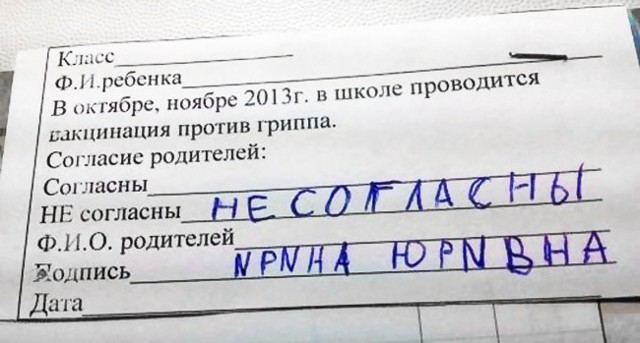 Класс
Ф.И.ребенка
В октябре, ноябре 2013г. в школе проводится
вакцинация против гриппа.
Согласие родителей:
Согласны
НЕ согласны НЕ СОГЛАСНЫ
Ф.И.О. родителей
Подпись NPNHA ЮPNBHA
Дата